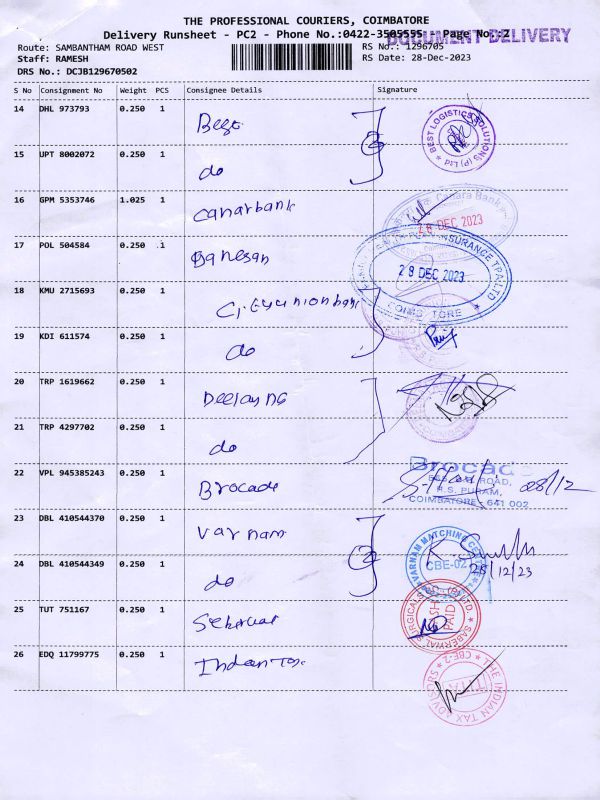 THE PROFESSIONAL COURIERS, COIMBATORE
Delivery Runsheet - PC2 - Phone No.:0422-3505555 Page No:2
DOCUMENT DELIVERY
Route: SAMBANTHAM ROAD WEST
RS No.: 1296705
Staff: RAMESH
RS Date: 28-Dec-2023
DRS No.: DCJB129670502
S No Consignment No Weight PCS Consignee Details Signature
14 DHL 973793 0.250 1 Best
BEST LOGISTICS SOLUTIONS (P) Ltd
15 UPT 8002072 0.250 1 do
16 GPM 5353746 1.025 1 canarbank
Canara Bank
28 DEC 2023
17 POL 504584 0.250 1 Ganesan
INSURANCE TPA LTD
28 DEC 2023
18 KMU 2715693 0.250 1
19 KDI 611574 0.250 1 do
20 TRP 1619662 0.250 1 Deejay NG
21 TRP 4297702 0.250 1 do
22 VPL 945385243 0.250 1 Brocade
Brocade
R.S. PURAM,
COIMBATORE - 641 002
28/12
23 DBL 410544370 0.250 1 varnam
VARNAM MATCHING CENTRE
CBE-02
28/12/23
24 DBL 410544349 0.250 1 do
25 TUT 751167 0.250 1
SABERWAL SURGICALS
CASH PAID
26 EDQ 11799775 0.250 1 Indian Tax
THE INDIAN TAX ADVISORS
CBE-2